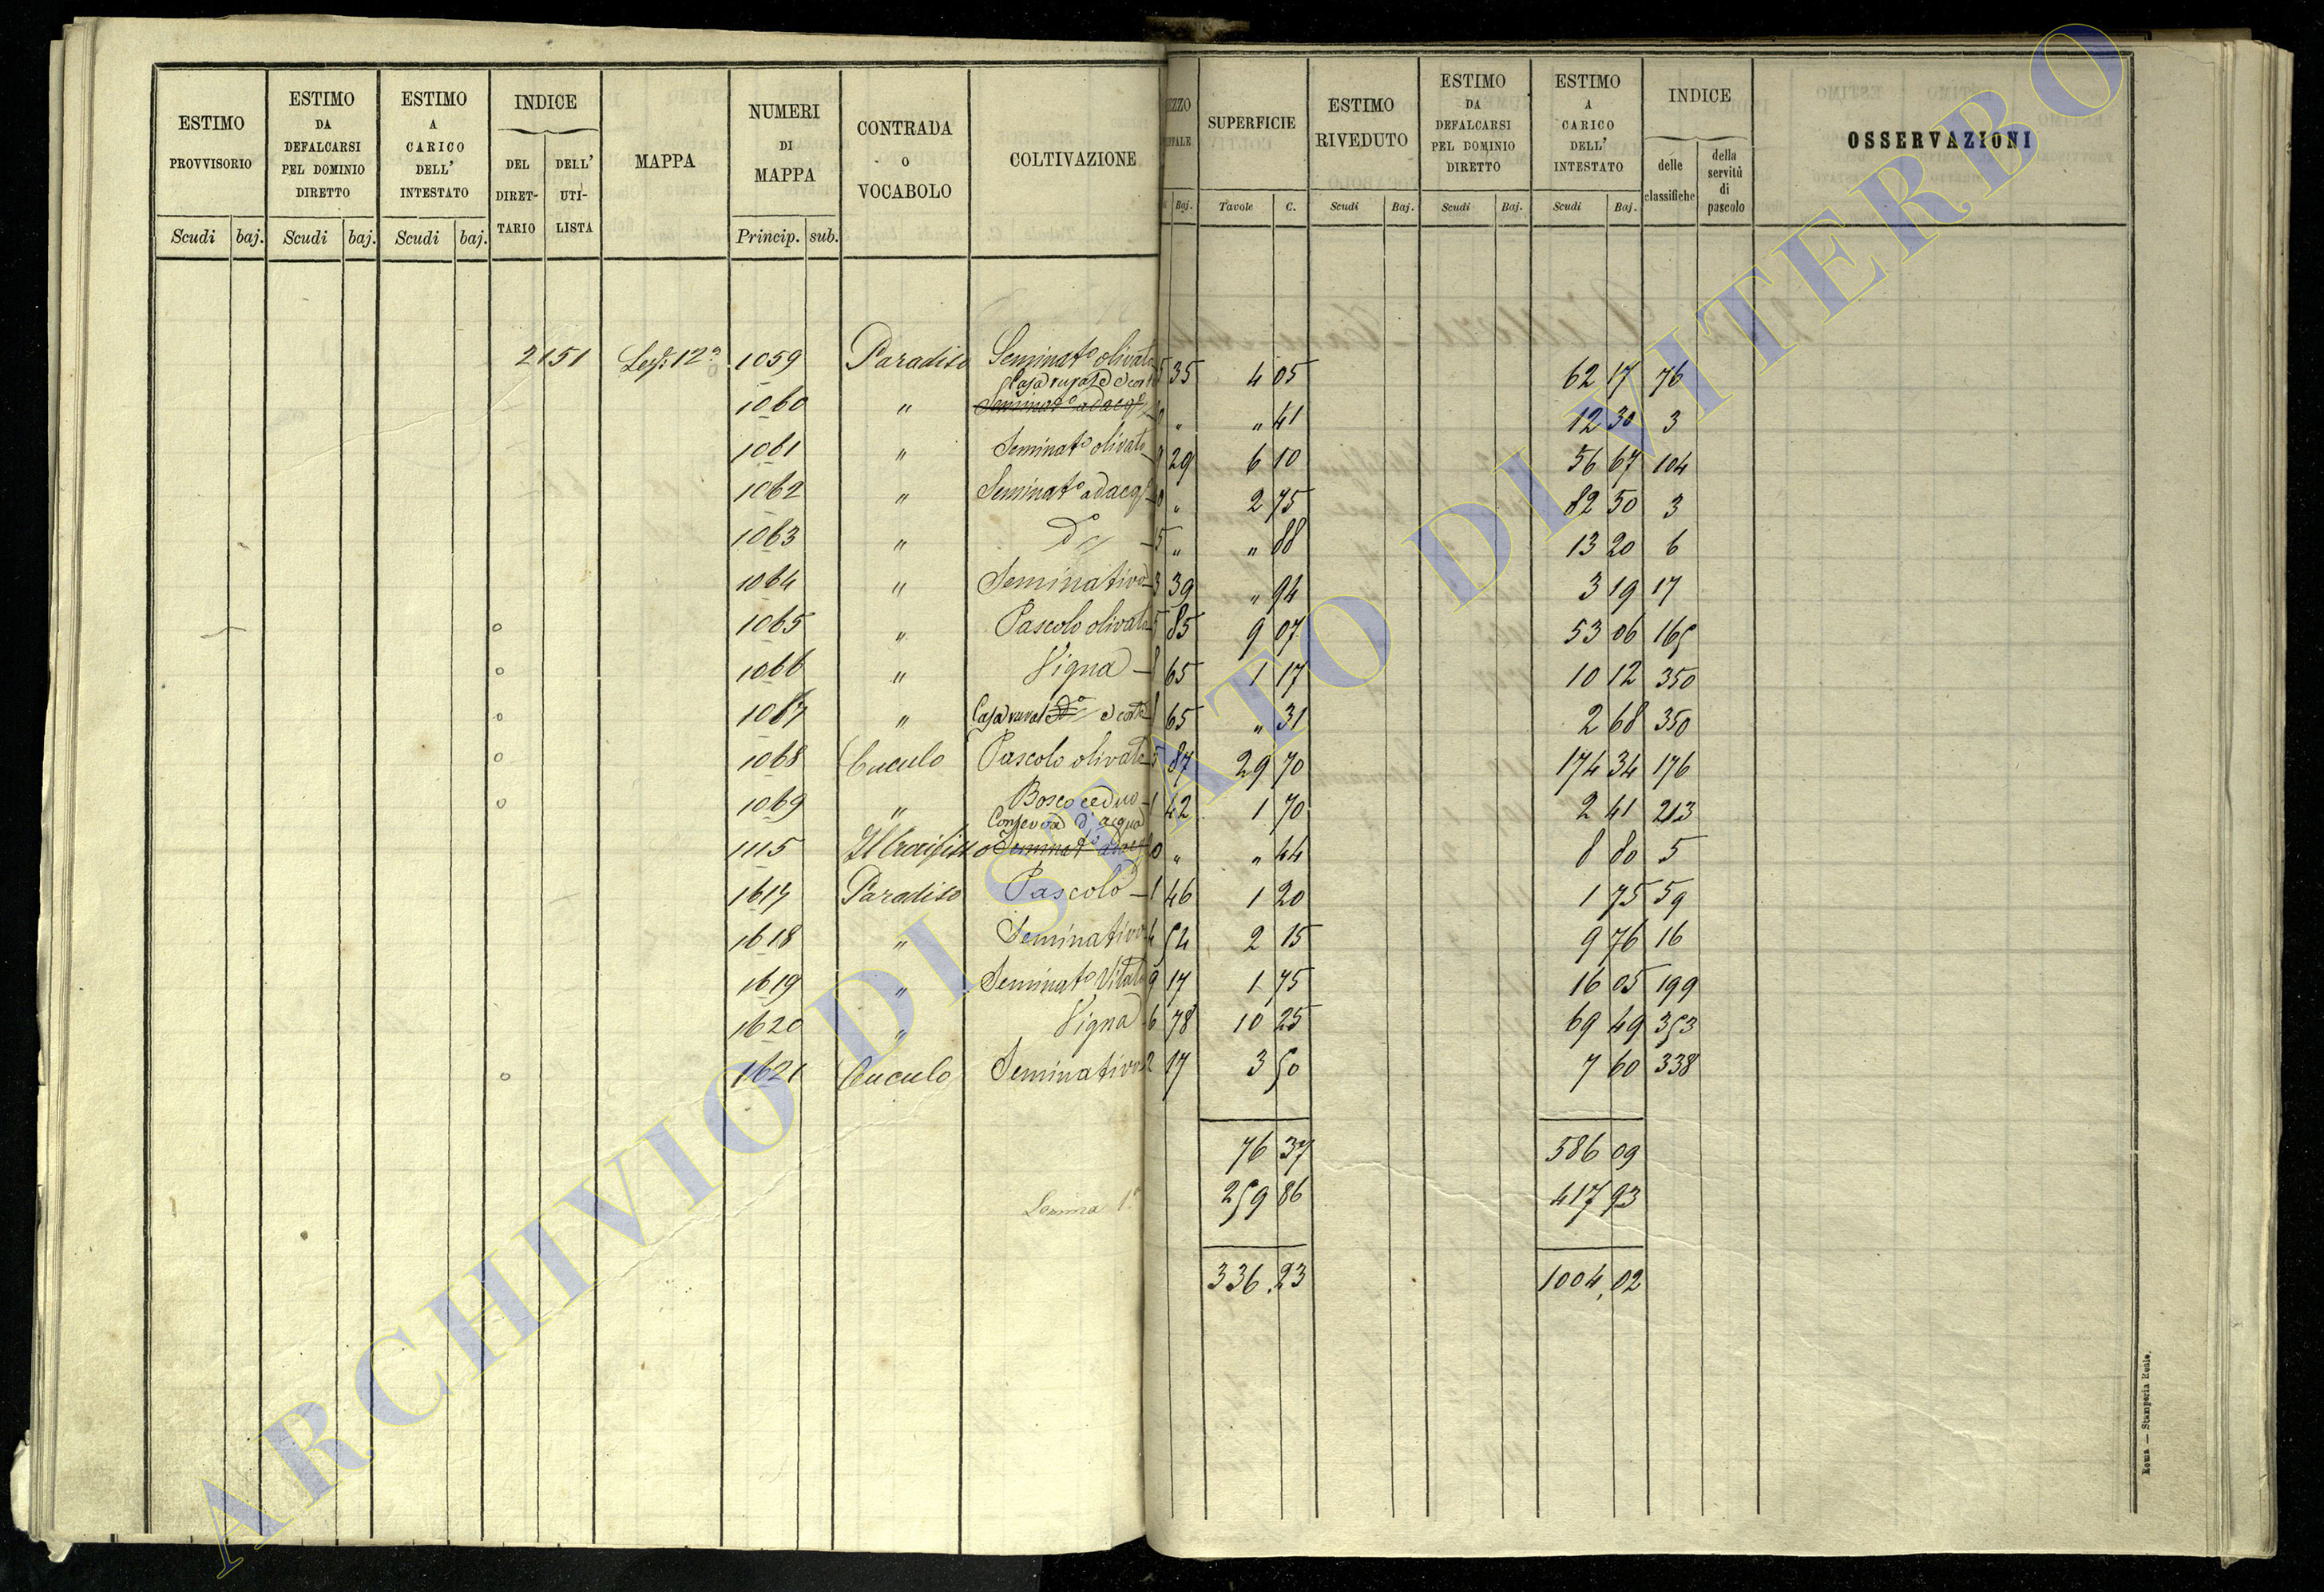 ESTIMO PROVVISORIO
ESTIMO DA DEFALCARSI PEL DOMINIO DIRETTO
ESTIMO A CARICO DELL' INTESTATO
INDICE
DEL DIRET-TARIO
DELL' UTI-LISTA
MAPPA
NUMERI DI MAPPA
CONTRADA O VOCABOLO
COLTIVAZIONE
Scudi baj. Scudi baj. Scudi baj. Princip. sub.
SUPERFICIE
ESTIMO RIVEDUTO
ESTIMO DA DEFALCARSI PEL DOMINIO DIRETTO
ESTIMO A CARICO DELL' INTESTATO
INDICE
delle classifiche
della servitù di pascolo
OSSERVAZIONI
Baj. Tavole C. Scudi Baj. Scudi Baj. Scudi Baj.
2151 1059 Paradiso Seminat° olivato 35 4 05 62 17 76
Casa rurale e corte
1060 " Seminat° adacq° " " 41 12 30 3
1061 " Seminat° olivato 29 6 10 56 67 104
1062 " Seminat° adacq° " 2 75 82 50 3
1063 " d° 5 " " 88 13 20 6
1064 " Seminativo 3 39 " 94 3 19 17
1065 " Pascolo olivato 5 85 9 07 53 06 165
1066 " Vigna 8 65 1 17 10 12 350
1067 " Casa rurale d° e corte 8 65 " 31 2 68 350
1068 Cuculo Pascolo olivato 5 87 29 70 174 34 176
1069 " Bosco ceduo 1 42 1 70 2 41 213
Conserva d'acqua
1115 Il Crocifisso Seminat° adacq° " " 44 8 80 5
1617 Paradiso Pascolo 1 46 1 20 1 75 59
1618 " Seminativo 4 54 2 15 9 76 16
1619 " Seminat° Vitato 9 17 1 75 16 05 199
1620 " Vigna 6 78 10 25 69 49 353
1621 Cuculo Seminativo 2 17 3 50 7 60 338
76 37 586 09
259 86 417 93
336.23 1004.02
Roma — Stamperia Reale.
ARCHIVIO DI STATO DI VITERBO